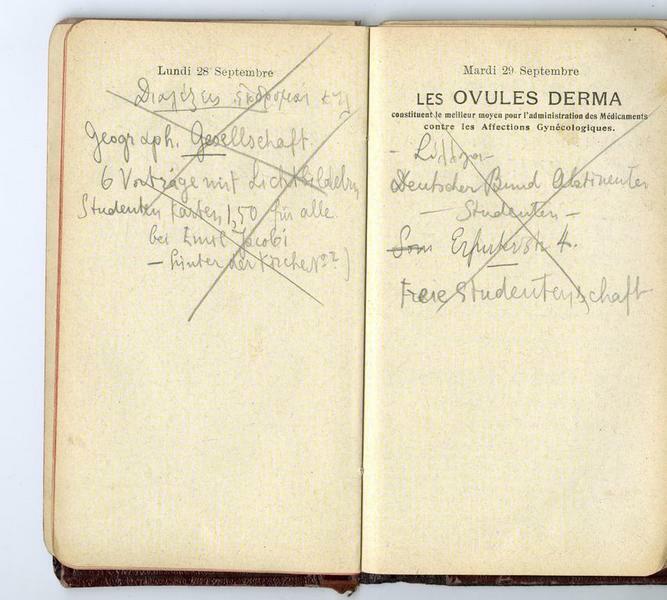 Lundi 28 Septembre
Διαλέξεις ἐκδρομαι κτλ
Geograph. Gesellschaft.
6 Vorträge mit Lichtbildern
Studenten Karten 1,50 für alle
bei Emil Jacobi
– hinter der Kirche No 2)
Mardi 29 Septembre
LES OVULES DERMA
constituent le meilleur moyen pour l'administration des Médicaments
contre les Affections Gynécologiques.
Deutscher Bund Abstinenter
– Studenten –
Erfurterstr 4.
Freie Studentenschaft